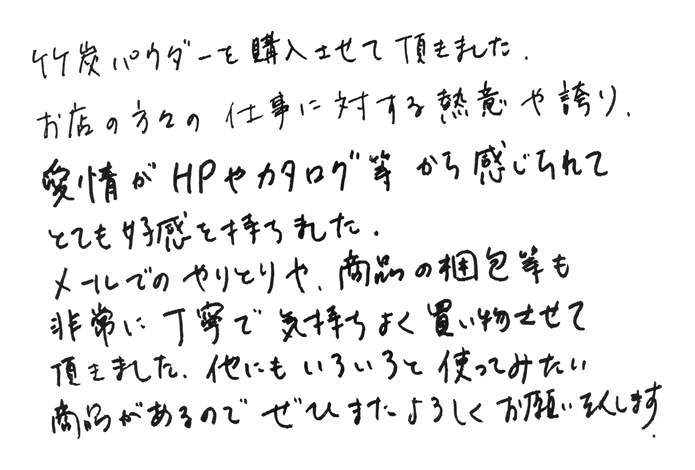 竹炭パウダーを購入させて頂きました.
お店の方々の仕事に対する熱意や誇り.
愛情がHPやカタログ等から感じられて
とても好感を持ちました.
メールでのやりとりや、商品の梱包等も
非常に丁寧で気持ちよく買い物させて
頂きました.他にもいろいろと使ってみたい
商品があるのでぜひまたよろしくお願い致します.